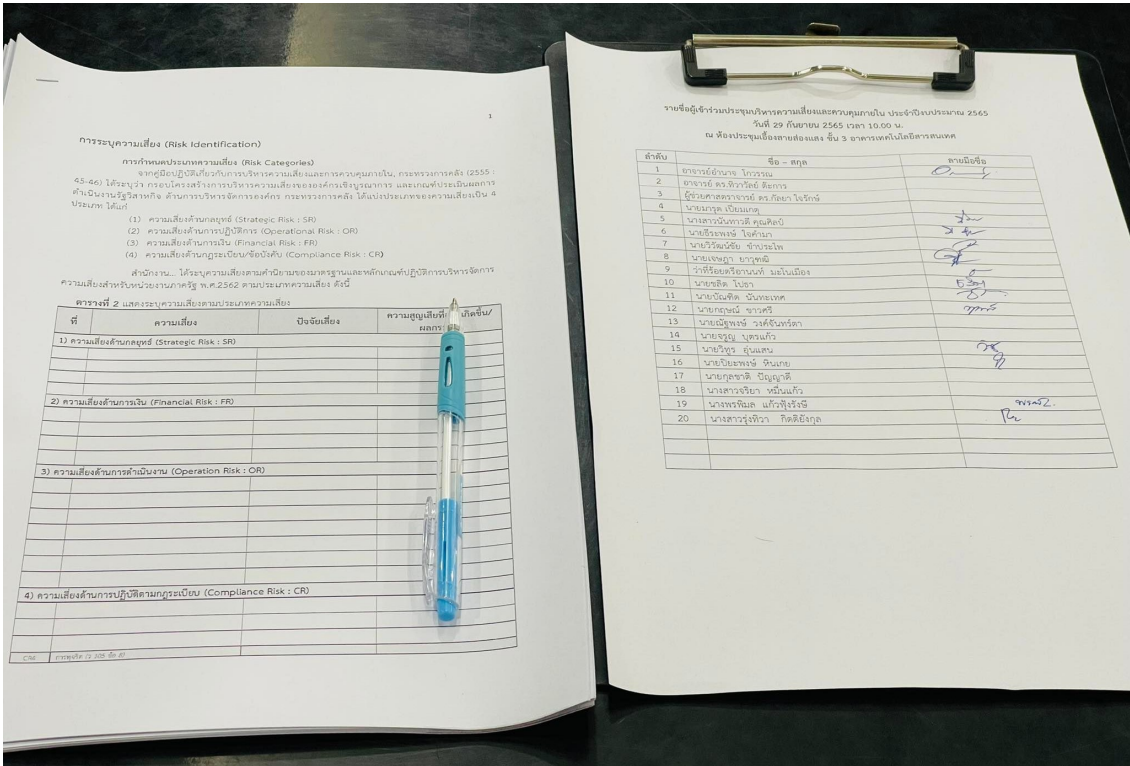 1
การระบุความเสี่ยง (Risk Identification)
การกำหนดประเภทความเสี่ยง (Risk Categories)
จากคู่มือปฏิบัติเกี่ยวกับการบริหารความเสี่ยงและการควบคุมภายใน, กระทรวงการคลัง (2555 :
45-46) ได้ระบุว่า กรอบโครงสร้างการบริหารความเสี่ยงขององค์กรเชิงบูรณาการ และเกณฑ์ประเมินผลการ
ดำเนินงานรัฐวิสาหกิจ ด้านการบริหารจัดการองค์กร กระทรวงการคลัง ได้แบ่งประเภทของความเสี่ยงเป็น 4
ประเภท ได้แก่
(1) ความเสี่ยงด้านกลยุทธ์ (Strategic Risk : SR)
(2) ความเสี่ยงด้านการปฏิบัติการ (Operational Risk : OR)
(3) ความเสี่ยงด้านการเงิน (Financial Risk : FR)
(4) ความเสี่ยงด้านกฎระเบียบ/ข้อบังคับ (Compliance Risk : CR)
สำนักงาน... ได้ระบุความเสี่ยงตามคำนิยามของมาตรฐานและหลักเกณฑ์ปฏิบัติการบริหารจัดการ
ความเสี่ยงสำหรับหน่วยงานภาครัฐ พ.ศ.2562 ตามประเภทความเสี่ยง ดังนี้
ตารางที่ 2 แสดงระบุความเสี่ยงตามประเภทความเสี่ยง
ที่ ความเสี่ยง ปัจจัยเสี่ยง ความสูญเสียที่ เกิดขึ้น/
1) ความเสี่ยงด้านกลยุทธ์ (Strategic Risk : SR)
2) ความเสี่ยงด้านการเงิน (Financial Risk : FR)
3) ความเสี่ยงด้านการดำเนินงาน (Operation Risk : OR)
4) ความเสี่ยงด้านการปฏิบัติตามกฎระเบียบ (Compliance Risk : CR)
รายชื่อผู้เข้าร่วมประชุมบริหารความเสี่ยงและควบคุมภายใน ประจำปีงบประมาณ 2565
วันที่ 29 กันยายน 2565 เวลา 10.00 น.
ณ ห้องประชุมเอื้องสายส่องแสง ชั้น 3 อาคารเทคโนโลยีสารสนเทศ
ลำดับ ชื่อ - สกุล ลายมือชื่อ
1 อาจารย์อำนาจ โกวรรณ
2 อาจารย์ ดร.ทิวาวัลย์ ต๊ะการ
3 ผู้ช่วยศาสตราจารย์ ดร.กัลยา ใจรักษ์
4 นายมารุต เปี่ยมเกตุ
5 นางสาวนันทาวดี คุณศิลป์
6 นายธีระพงษ์ ใจคำมา
7 นายวิวัฒน์ชัย ขำประไพ
8 นายเจษฎา ยาวุฑฒิ
9 ว่าที่ร้อยตรีอานนท์ มะโนเมือง
10 นายชลิต โปธา
11 นายบัณฑิต นันทะเทศ
12 นายกฤษณ์ ขาวศรี
13 นายณัฐพงษ์ วงค์จันทร์ตา
14 นายจรูญ บุตรแก้ว
15 นายวิทูร อุ่นแสน
16 นายปิยะพงษ์ หินเกย
17 นายกุลชาติ ปัญญาดี
18 นางสาวจริยา หมื่นแก้ว
19 นางพรพิมล แก้วฟุ้งรังษี
20 นางสาวรุ่งทิวา กิตติยังกุล